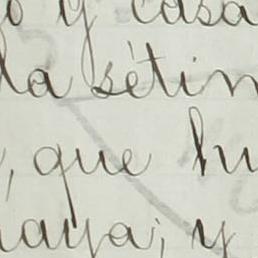 o y casa
la sétim
, que hu
naya; y